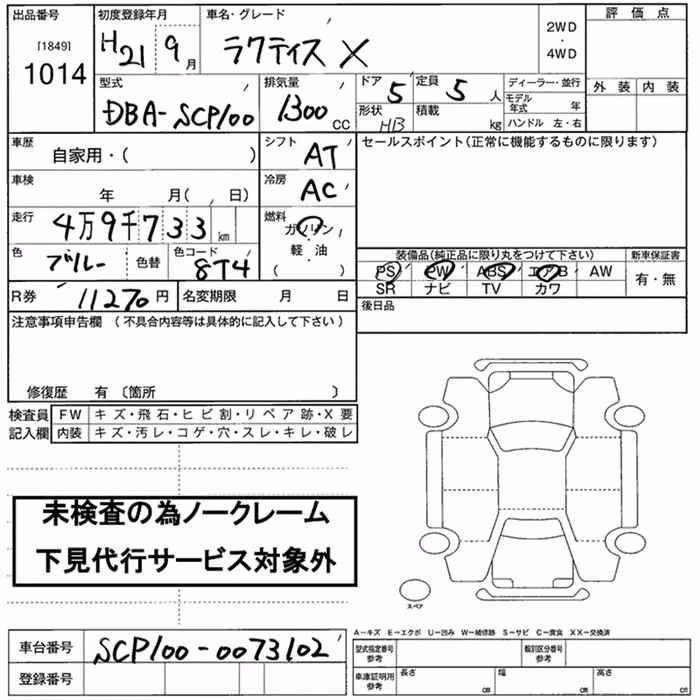 出品番号 初度登録年月 車名・グレード 2WD・4WD 評価点
[1849]
1014
H21 9月
ラクティス X
外装 内装
型式 排気量 ドア 定員 ディーラー・並行
DBA-SCP100 1300 CC 5 5人
形状 積載 モデル年式 年
HB kg ハンドル 左・右
車歴 シフト セールスポイント(正常に機能するものに限ります)
自家用・( ) AT
車検 冷房
年 月( 、 日) AC
走行 燃料
4万9千733km ガソリン
軽・油
( )
色 色コード 装備品(純正品に限り丸をつけて下さい) 新車保証書
ブルー 色替 8T4
PS PW ABS エアB AW 有・無
SR ナビ TV カワ
R券 11270円 名変期限 月 日 後日品
注意事項申告欄 (不具合内容等は具体的に記入して下さい)
修復歴 有 〔箇所 〕
検査員 FW キズ・飛石・ヒビ割・リペア跡・X要
記入欄 内装 キズ・汚レ・コゲ・穴・スレ・キレ・破レ
未検査の為ノークレーム
下見代行サービス対象外
スペア
A-キズ E-エクボ U-凹み W-補修跡 S-サビ C-腐食 XX-交換済
車台番号 SCP100-0073102
型式指定番号 参考 類別区分番号 参考
登録番号
車庫証明用 参考 長さ cm 幅 cm 高さ cm